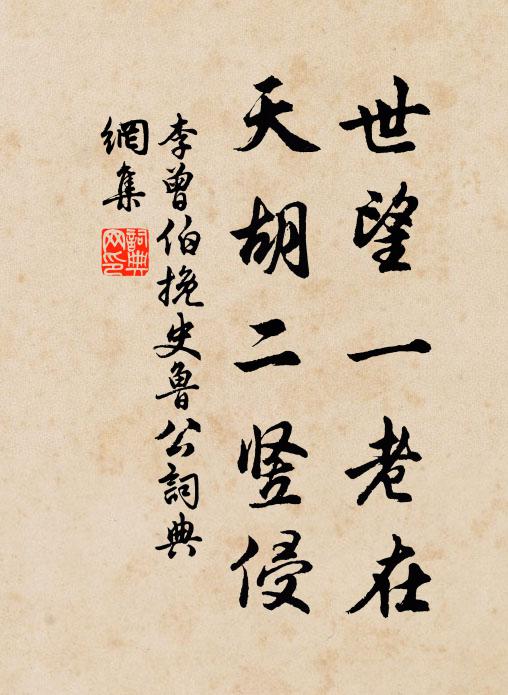 世望一老在
天胡二竖侵
李曾伯挽史鲁公詞典
網集
詞典
网印